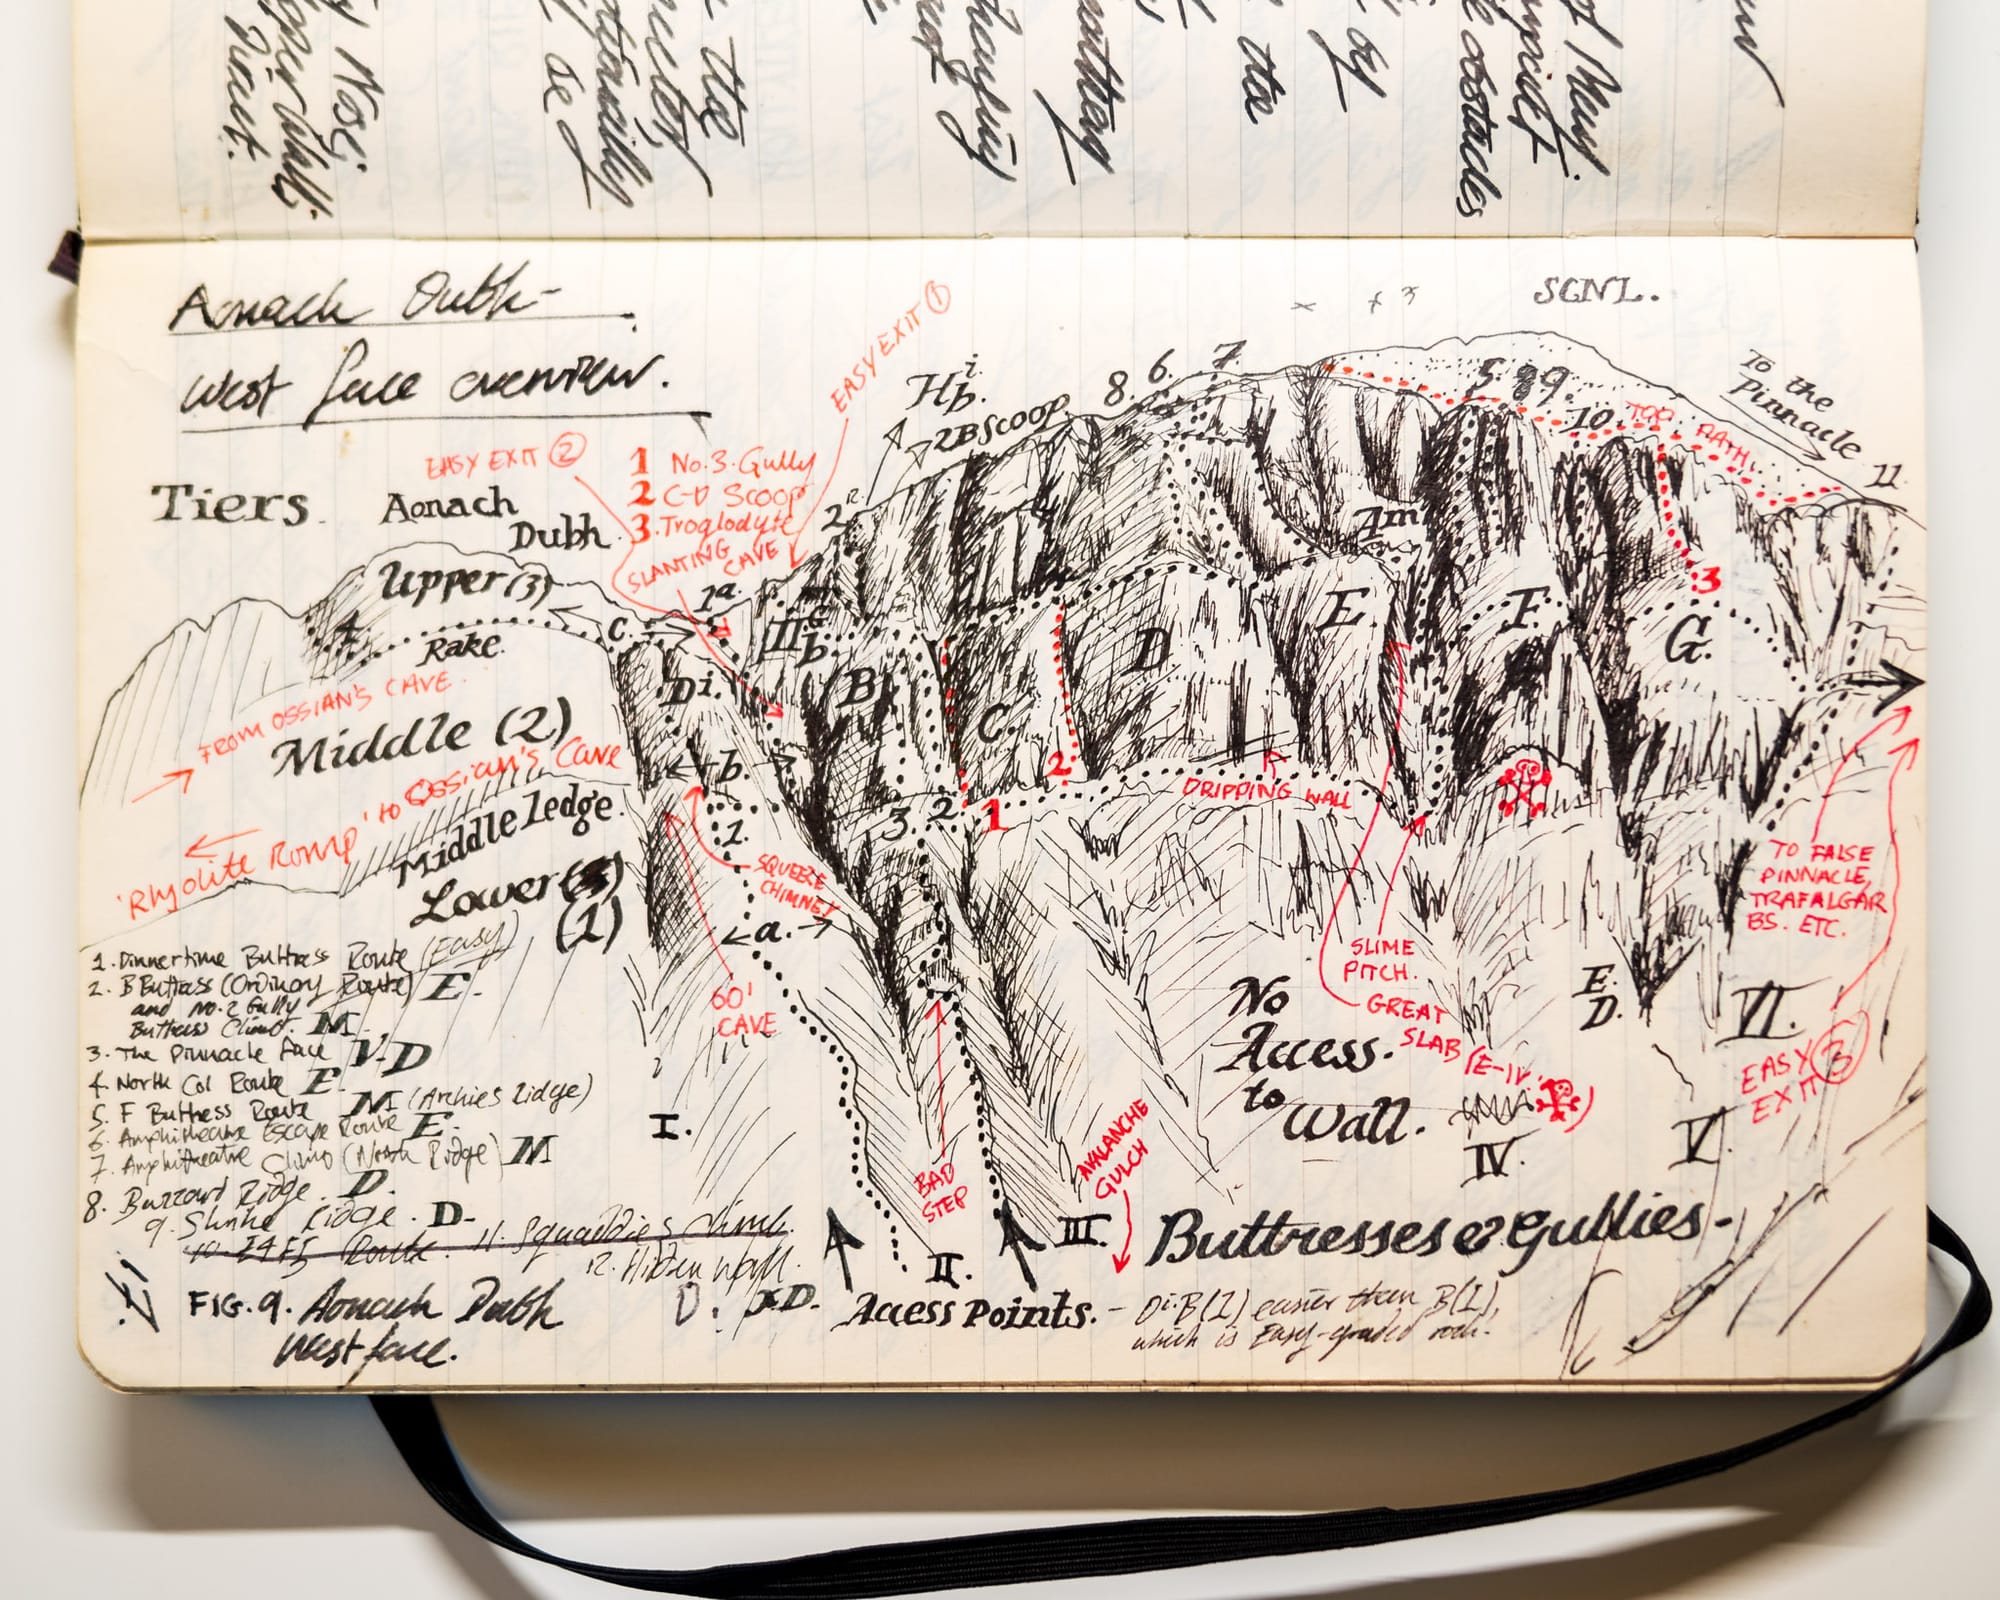 Nose;
the
the
by
the
obstacles
Aonach Dubh -
West face overview.
SCNL.
EASY EXIT 1
Hb.
2B Scoop
8.
6.
7.
5.
8
9
10.
TOP PATH.
To the
Pinnacle
11
EASY EXIT 2
1 No.3. Gully
2 C-D Scoop
3 Troglodyte
SLANTING
CAVE
Tiers. Aonach
Dubh.
Upper (3)
4.
Rake.
C.
1a.
2
Am
3
FROM OSSIAN'S CAVE.
Middle (2)
'Rhyolite Romp' to Ossian's Cave
Middle ledge.
Lower (3)
(1)
Di.
b
B
C
D
E
F
G.
b.
1.
3.
2
1
2
DRIPPING WALL
SQUEEZE
CHIMNEY
a.
60'
CAVE
SLIME
PITCH.
GREAT
SLAB (E-IV.
)
TO FALSE
PINNACLE,
TRAFALGAR
BS. ETC.
No
Access.
to
Wall.
E.
D.
EASY
EXIT 3
I.
II.
III.
IV.
V.
VI.
BAD
STEP
AVALANCHE
GULCH
1. Dinnertime Buttress Route (Easy)
2. B Buttress (Ordinary Route) E.
and No.2 Gully
Buttress Climb. M.
3. The Pinnacle Face V.D
4. North Col Route E.
5. F Buttress Route M (Archies Ridge)
6. Amphitheatre Escape Route E.
7. Amphitheatre Climb (North Ridge) M
8. Buzzard Ridge. D.
9. Shrike Ridge. D.
10. Route. 11. Squaddies Climb.
12. Hidden Wall.
FIG. 9. Aonach Dubh
West face.
Access Points. - Di.B(2) easier than B(1),
which is Easy-graded rock.
Buttresses & Gullies -